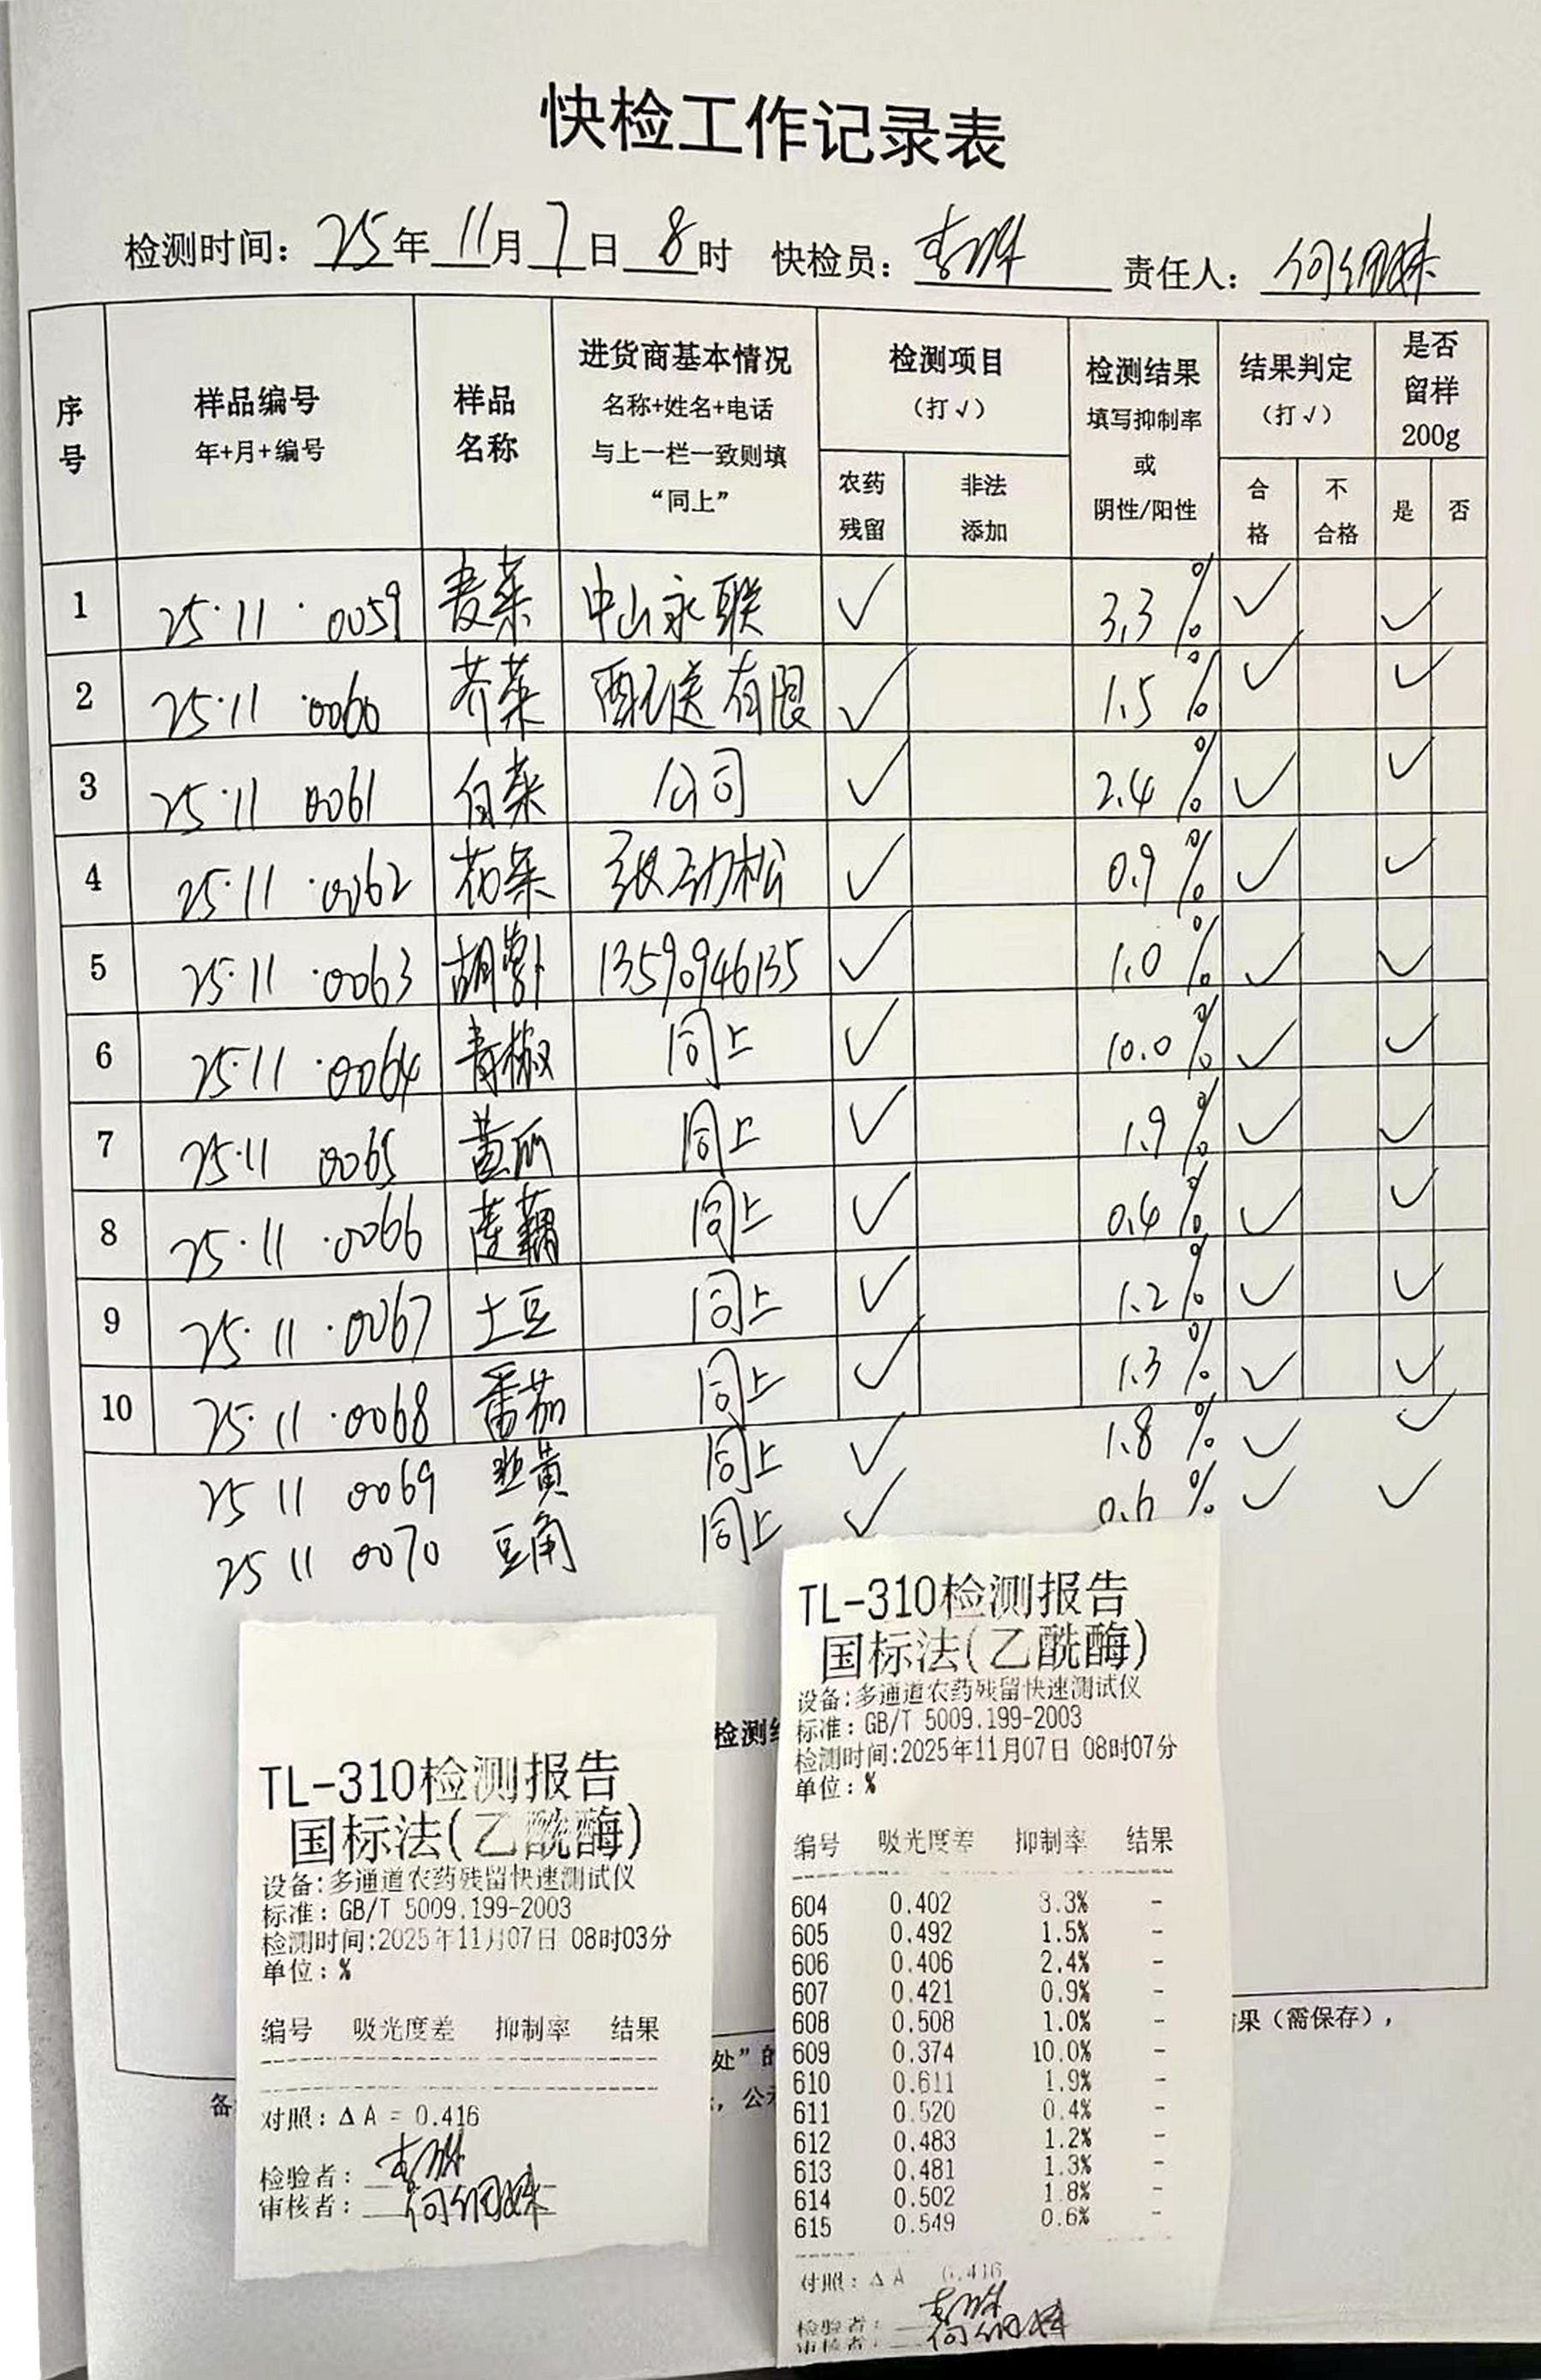 快检工作记录表
检测时间: 25年 11月 7日 8时 快检员: 责任人: 何细妹
序号 样品编号 年+月+编号 样品名称 进货商基本情况 名称+姓名+电话 与上一栏一致则填 “同上” 检测项目 (打√) 农药残留 非法添加 检测结果 填写抑制率 或 阴性/阳性 结果判定 (打√) 合格 不合格 是否留样 200g 是 否
1 25·11·0059 麦菜 中山永联 ✓ 3.3% ✓ ✓
2 25·11·0060 芥菜 配送有限 ✓ 1.5% ✓ ✓
3 25·11 0061 白菜 公司 ✓ 2.4% ✓ ✓
4 25·11·0062 花菜 张劲松 ✓ 0.9% ✓ ✓
5 25·11·0063 胡萝卜 13590946135 ✓ 1.0% ✓ ✓
6 25·11·0064 青椒 同上 ✓ 10.0% ✓ ✓
7 25·11 0065 黄瓜 同上 ✓ 1.9% ✓ ✓
8 25·11·0066 莲藕 同上 ✓ 0.4% ✓ ✓
9 25·11·0067 土豆 同上 ✓ 1.2% ✓ ✓
10 25·11·0068 番茄 同上 ✓ 1.3% ✓ ✓
25 11 0069 韭黄 同上 ✓ 1.8% ✓ ✓
25 11 0070 豆角 同上 ✓ 0.6% ✓ ✓
检测结
果(需保存),
处”的
备
,公示
TL-310检测报告
国标法(乙酰酶)
设备:多通道农药残留快速测试仪
标准: GB/T 5009.199-2003
检测时间:2025年11月07日 08时03分
单位: %
编号 吸光度差 抑制率 结果
对照: ΔA = 0.416
检验者:
审核者: 何细妹
TL-310检测报告
国标法(乙酰酶)
设备:多通道农药残留快速测试仪
标准: GB/T 5009.199-2003
检测时间:2025年11月07日 08时07分
单位: %
编号 吸光度差 抑制率 结果
604 0.402 3.3% -
605 0.492 1.5% -
606 0.406 2.4% -
607 0.421 0.9% -
608 0.508 1.0% -
609 0.374 10.0% -
610 0.611 1.9% -
611 0.520 0.4% -
612 0.483 1.2% -
613 0.481 1.3% -
614 0.502 1.8% -
615 0.549 0.6% -
对照: ΔA 0.416
检验者:
审核者: 何细妹